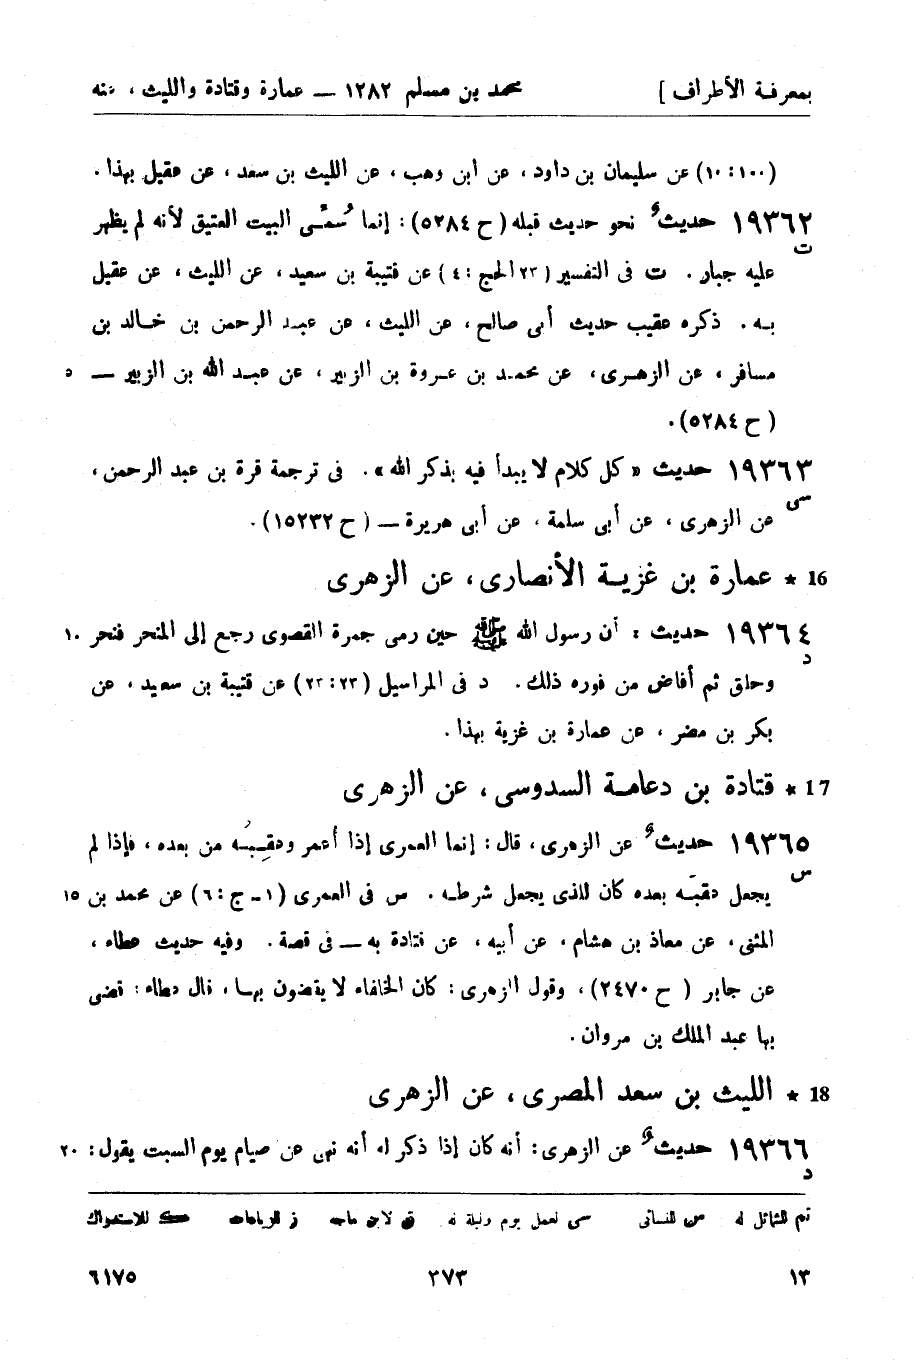 بمعرفة الأطراف ] محمد بن مسلم ١٢٨٢ — عمارة وقتادة والليث ، عنه
(١٠٠ : ١٠) عن سليمان بن داود ، عن ابن وهب ، عن الليث بن سعد ، عن عقيل بهذا .
١٩٣٦٢ حديثٌ نحو حديث قبله ( ح ٥٢٨٤) : إنما سُمّى البيت العتيق لأنه لم يظهر
ت
عليه جبار . ت فى التفسير ( ٢٣ الحج : ٤ ) عن قتيبة بن سعيد ، عن الليث ، عن عقيل
به . ذكره عقيب حديث أبى صالح ، عن الليث ، عن عبد الرحمن بن خالد بن
مسافر ، عن الزهرى ، عن محمد بن عروة بن الزبير ، عن عبد الله بن الزبير — ٥
( ح ٥٢٨٤) .
١٩٣٦٣ حديث « كل كلام لا يبدأ فيه بذكر الله » . فى ترجمة قرة بن عبد الرحمن ،
سى
عن الزهرى ، عن أبى سلمة ، عن أبى هريرة — ( ح ١٥٢٣٢) .
16 * عمارة بن غزية الأنصارى ، عن الزهرى
١٩٣٦٤ حديث : أن رسول الله ﷺ حين رمى جمرة القصوى رجع إلى المنحر فنحر ١٠
د
وحلق ثم أفاض من فوره ذلك . د فى المراسيل (٢٣ : ٢٣) عن قتيبة بن سعيد ، عن
بكر بن مضر ، عن عمارة بن غزية بهذا .
17 * قتادة بن دعامة السدوسى ، عن الزهرى
١٩٣٦٥ حديثٌ عن الزهرى ، قال : إنما العمرى إذا أعمر وعقبَه من بعده ، فإذا لم
س
يجعل عقبَه بعده كان للذى يجعل شرطه . س فى العمرى (١ - ج : ٦) عن محمد بن ١٥
المثنى ، عن معاذ بن هشام ، عن أبيه ، عن قتادة به — فى قصة . وفيه حديث عطاء ،
عن جابر ( ح ٢٤٧٠) ، وقول الزهرى : كان الخلفاء لا يقضون بها ، قال عطاء : قضى
بها عبد الملك بن مروان .
18 * الليث بن سعد المصرى ، عن الزهرى
١٩٣٦٦ حديثٌ عن الزهرى : أنه كان إذا ذكر له أنه نهى عن صيام يوم السبت يقول : ٢٠
د
تم للشمائل له س للنسائى سى لعمل يوم وليلة له ق لابن ماجه ز للزيادات ك للاستدراك
١٣ ٣٧٣ ٦١٧٥